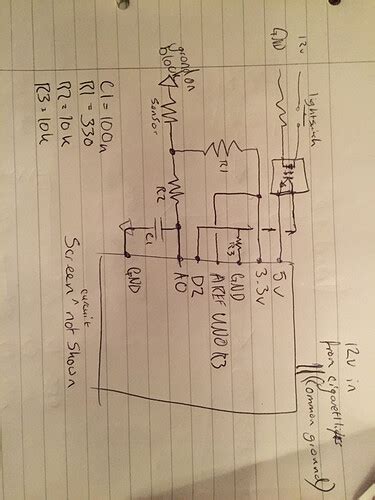 12v in
(common ground)
12v
GND
lightswitch
5V
3.3v
R3
GND
R1
AREF UNO R3
D2
ground on
block
sensor
R2
A0
C1
GND
C1 = 100n
R1 = 330
R2 = 10k
R3 = 10k
circuit
Screen ^ not shown